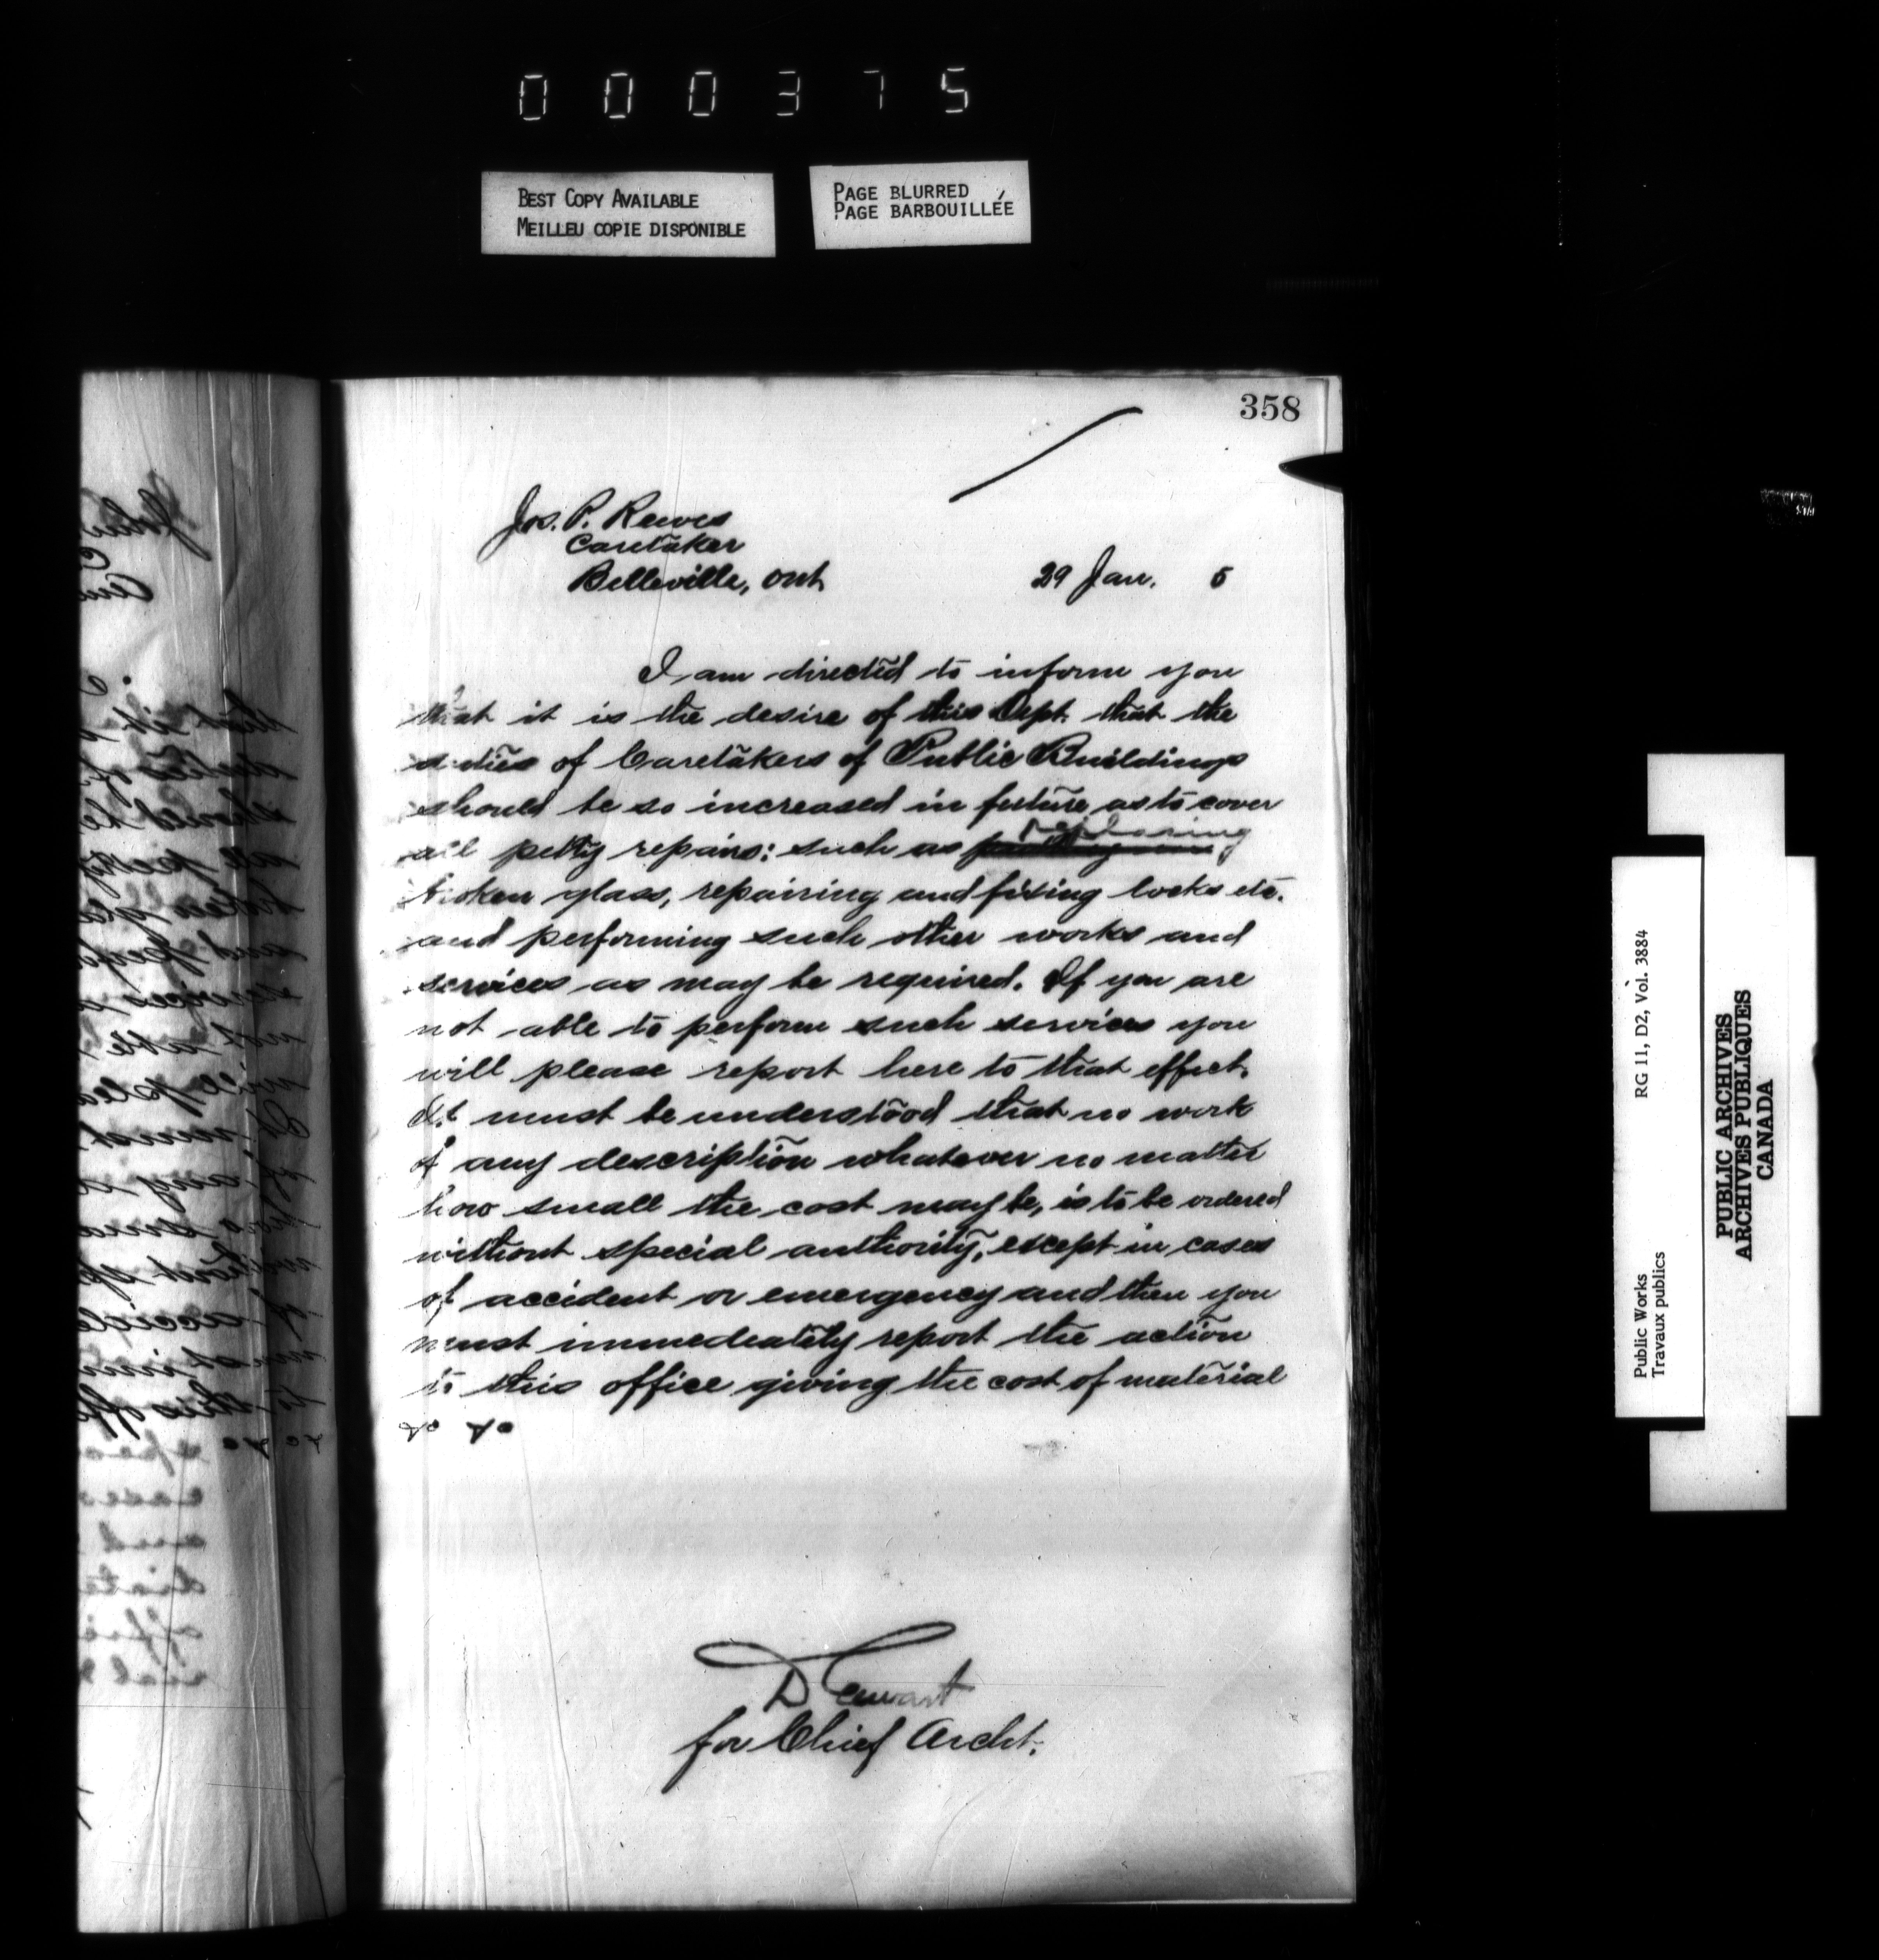 000375
BEST COPY AVAILABLE
MEILLEU COPIE DISPONIBLE
PAGE BLURRED
PAGE BARBOUILLÉE
358
Jos. P. Reeves
Caretaker
Belleville, Ont
29 Jan. 5
I am directed to inform you
that it is the desire of this Dept. that the
duties of Caretakers of Public Buildings
should be so increased in future as to cover
all petty repairs: such as replacing
broken glass, repairing and fixing locks etc.
and performing such other works and
services as may be required. If you are
not able to perform such services you
will please report here to that effect.
It must be understood that no work
of any description whatever no matter
how small the cost may be, is to be ordered
without special authority, except in cases
of accident or emergency and then you
must immediately report the action
to this office giving the cost of material
&c &c
D Ewart
for Chief Archt.
RG 11, D2, Vol. 3884
Public Works
Travaux publics
PUBLIC ARCHIVES
ARCHIVES PUBLIQUES
CANADA